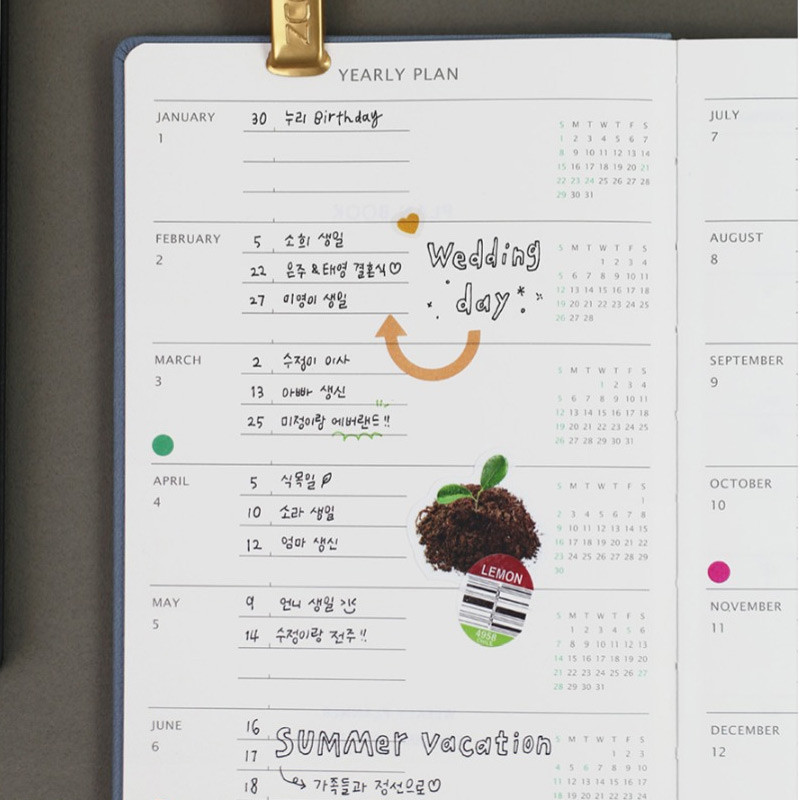 ZOO
YEARLY PLAN
JANUARY
1
30 누리 Birthday
S M T W T F S
1 2 3 4 5 6 7
8 9 10 11 12 13 14
15 16 17 18 19 20 21
22 23 24 25 26 27 28
29 30 31
FEBRUARY
2
5 소희 생일
22 은주 & 태영 결혼식♡
27 미영이 생일
Wedding
day
S M T W T F S
1 2 3 4
5 6 7 8 9 10 11
12 13 14 15 16 17 18
19 20 21 22 23 24 25
26 27 28
MARCH
3
2 수정이 이사
13 아빠 생신
25 미정이랑 에버랜드!!
S M T W T F S
1 2 3 4
5 6 7 8 9 10 11
12 13 14 15 16 17 18
19 20 21 22 23 24 25
26 27 28 29 30 31
APRIL
4
5 식목일
10 소라 생일
12 엄마 생신
LEMON
4958
S M T W T F S
1
2 3 4 5 6 7 8
9 10 11 12 13 14 15
16 17 18 19 20 21 22
23 24 25 26 27 28 29
30
MAY
5
9 언니 생일
14 수정이랑 전주!!
S M T W T F S
1 2 3 4 5 6
7 8 9 10 11 12 13
14 15 16 17 18 19 20
21 22 23 24 25 26 27
28 29 30 31
JUNE
6
16
17
18
SUMMER vacation
가족들과 정선으로♡
S M T W T F S
1 2 3
4 5 6 7 8 9 10
11 12 13 14 15 16 17
18 19 20 21 22 23 24
JULY
7
AUGUST
8
SEPTEMBER
9
OCTOBER
10
NOVEMBER
11
DECEMBER
12